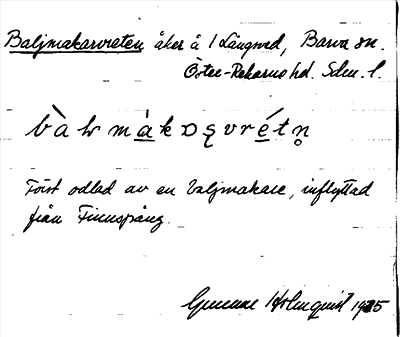 Baljmakarvreten åker å 1 Långmd, Barva sn.
Öster-Rekarne hd. Sdm. l.
Först odlad av en baljmakare, inflyttad
från Finnspång.
Gunnar Holmquist 1935